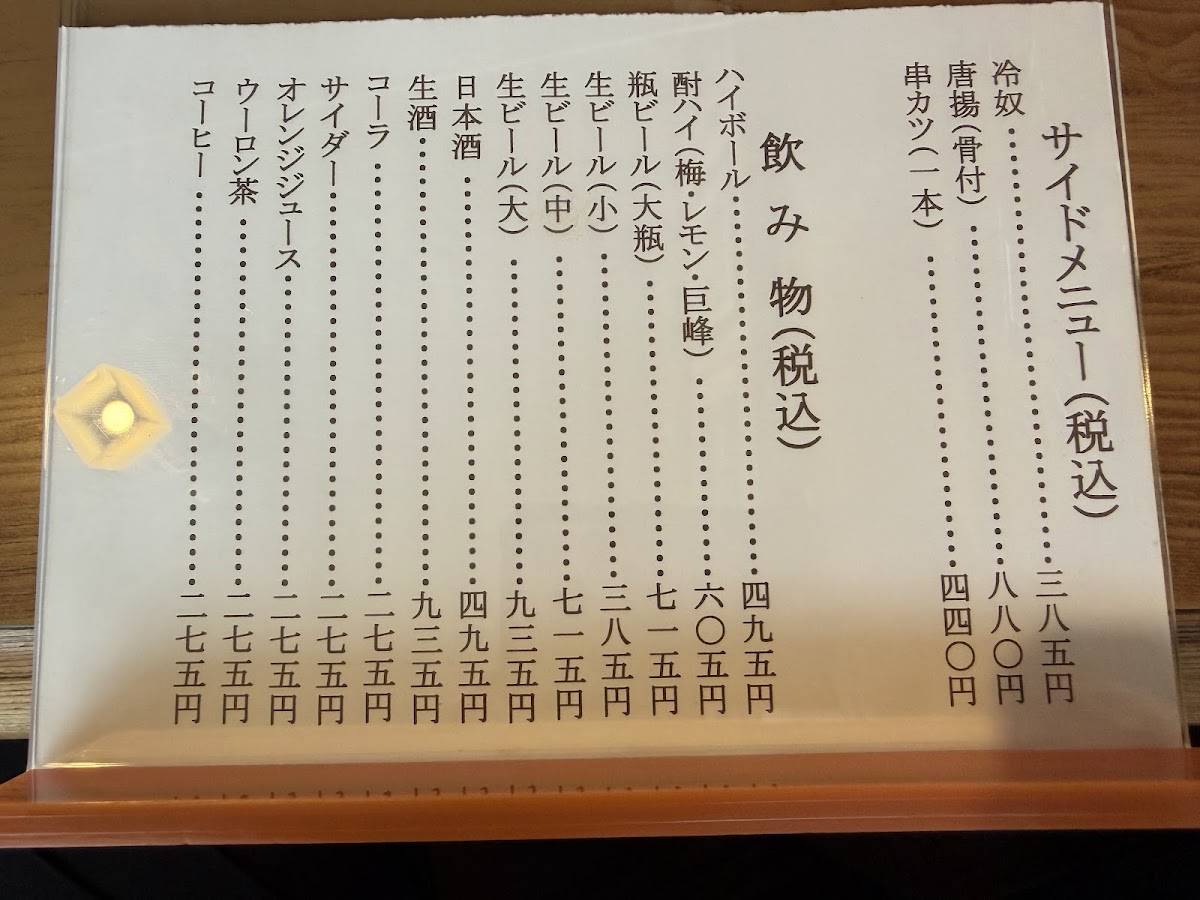 サイドメニュー(税込)
冷奴…………三八五円
唐揚(骨付)…………八八〇円
串カツ(一本)…………四四〇円
飲み物(税込)
ハイボール…………四九五円
酎ハイ(梅・レモン・巨峰)…………六〇五円
瓶ビール(大瓶)…………七一五円
生ビール(小)…………三八五円
生ビール(中)…………七一五円
生ビール(大)…………九三五円
日本酒…………四九五円
生酒…………九三五円
コーラ…………二七五円
サイダー…………二七五円
オレンジジュース…………二七五円
ウーロン茶…………二七五円
コーヒー…………二七五円